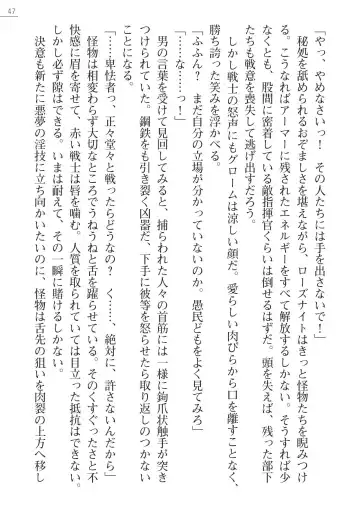 47
「やっ、やめなさいっ！　その人たちには手を出さないで！」
秘処を舐められるおぞましさを堪えながら、ローズナイトはきっと怪物たちを睨みつけ
る。こうなればアーマーに残されたエネルギーをすべて解放するしかない。そうすれば少
なくとも、股間に密着している敵指揮官くらいは倒せるはずだ。頭を失えば、残った部下
たちも戦意を喪失して逃げ出すだろう。
しかし戦士の怒声にもグロームは涼しい顔だ。愛らしい肉びらから口を離すことなく、
勝ち誇った笑みを浮かべる。
「ふふん？　まだ自分の立場が分かっていないのか。愚民どもをよく見てみろ」
「……な……っ！」
男の言葉を受けて見回してみると、捕らわれた人々の首筋には一様に鉤爪状触手が突き
つけられていた。鋼鉄をも引き裂く凶器だ、下手に彼等を怒らせたら取り返しのつかない
ことになる。
「……卑怯者っ、正々堂々と戦ったらどうなの？　く……、絶対に、許さないんだから」
怪物は相変わらず大切なところでうねうねと舌を躍らせている。そのくすぐったさと不
快感に眉を寄せて、赤い戦士は唇を噛む。人質を取られていては目立った抵抗はできない。
しかし必ず隙はできる。いまは耐えて、その一瞬に賭けるしかない。
決意も新たに悪夢の淫技に立ち向かいたいのに、怪物は舌先の狙いを肉裂の上方へ移し